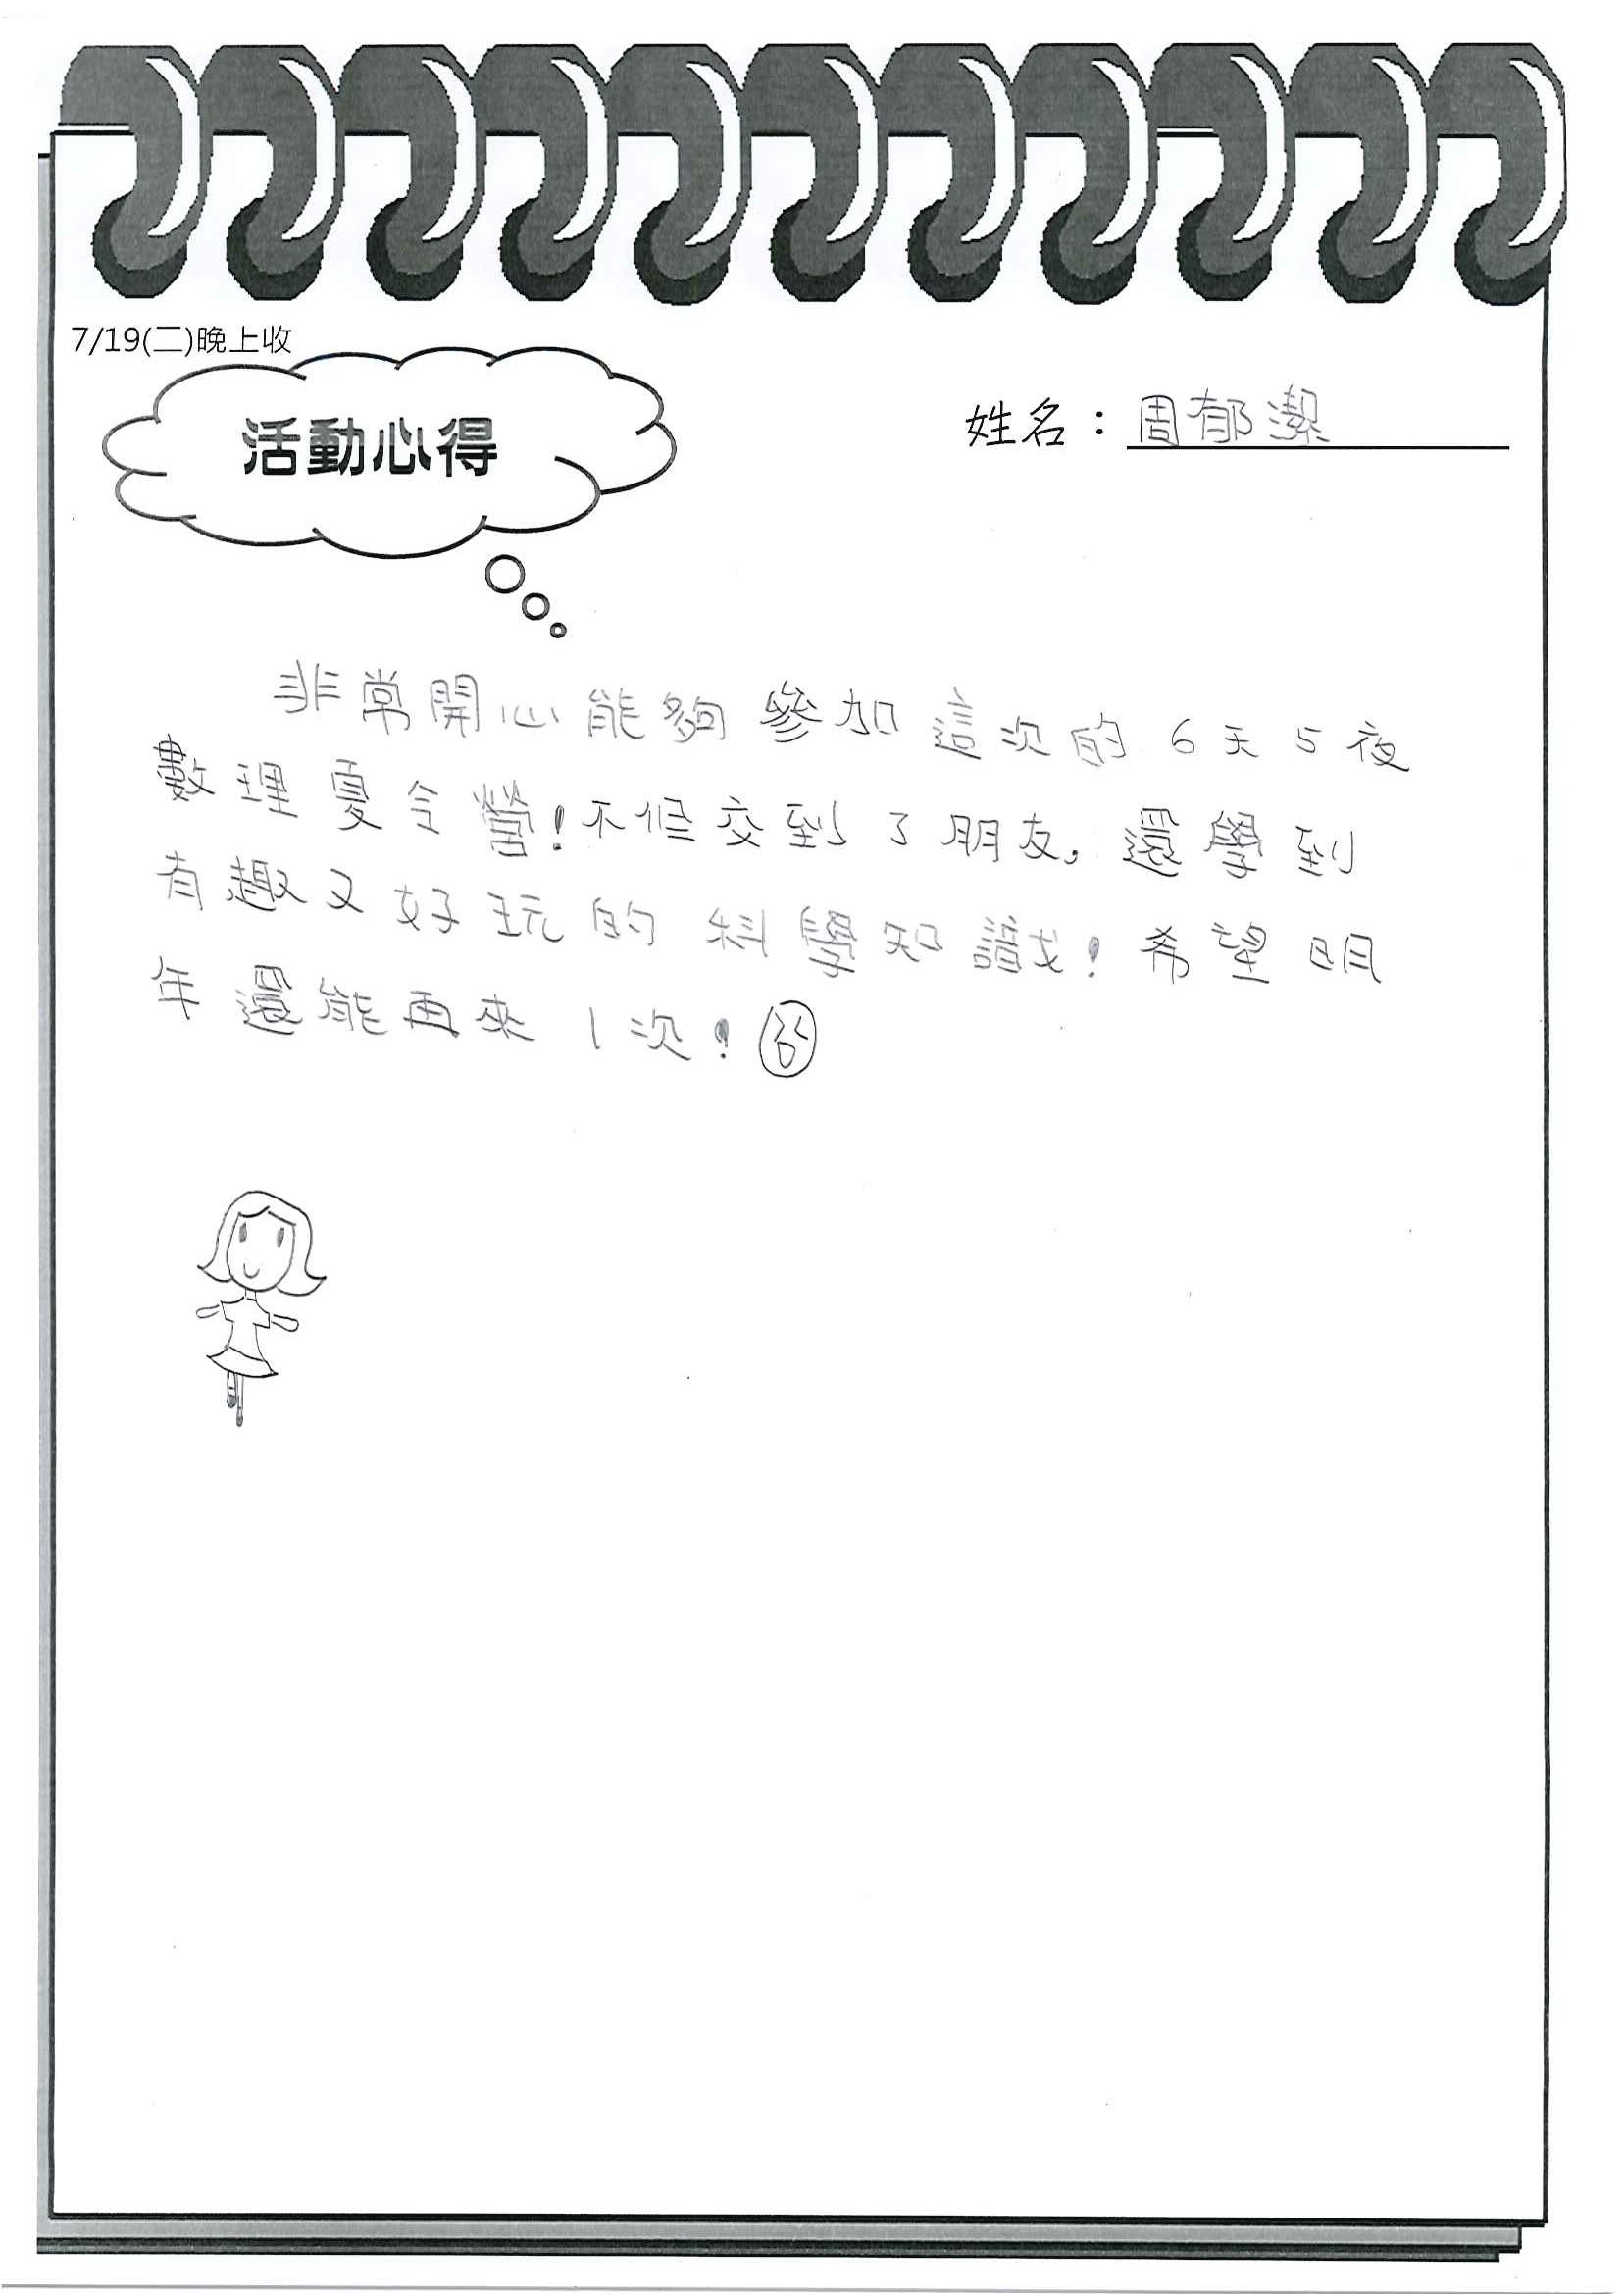 7/19(二)晚上收
活動心得
姓名：周郁潔
非常開心能夠參加這次的6天5夜
數理夏令營!不僅交到了朋友,還學到
有趣又好玩的科學知識!希望明
年還能再來1次!